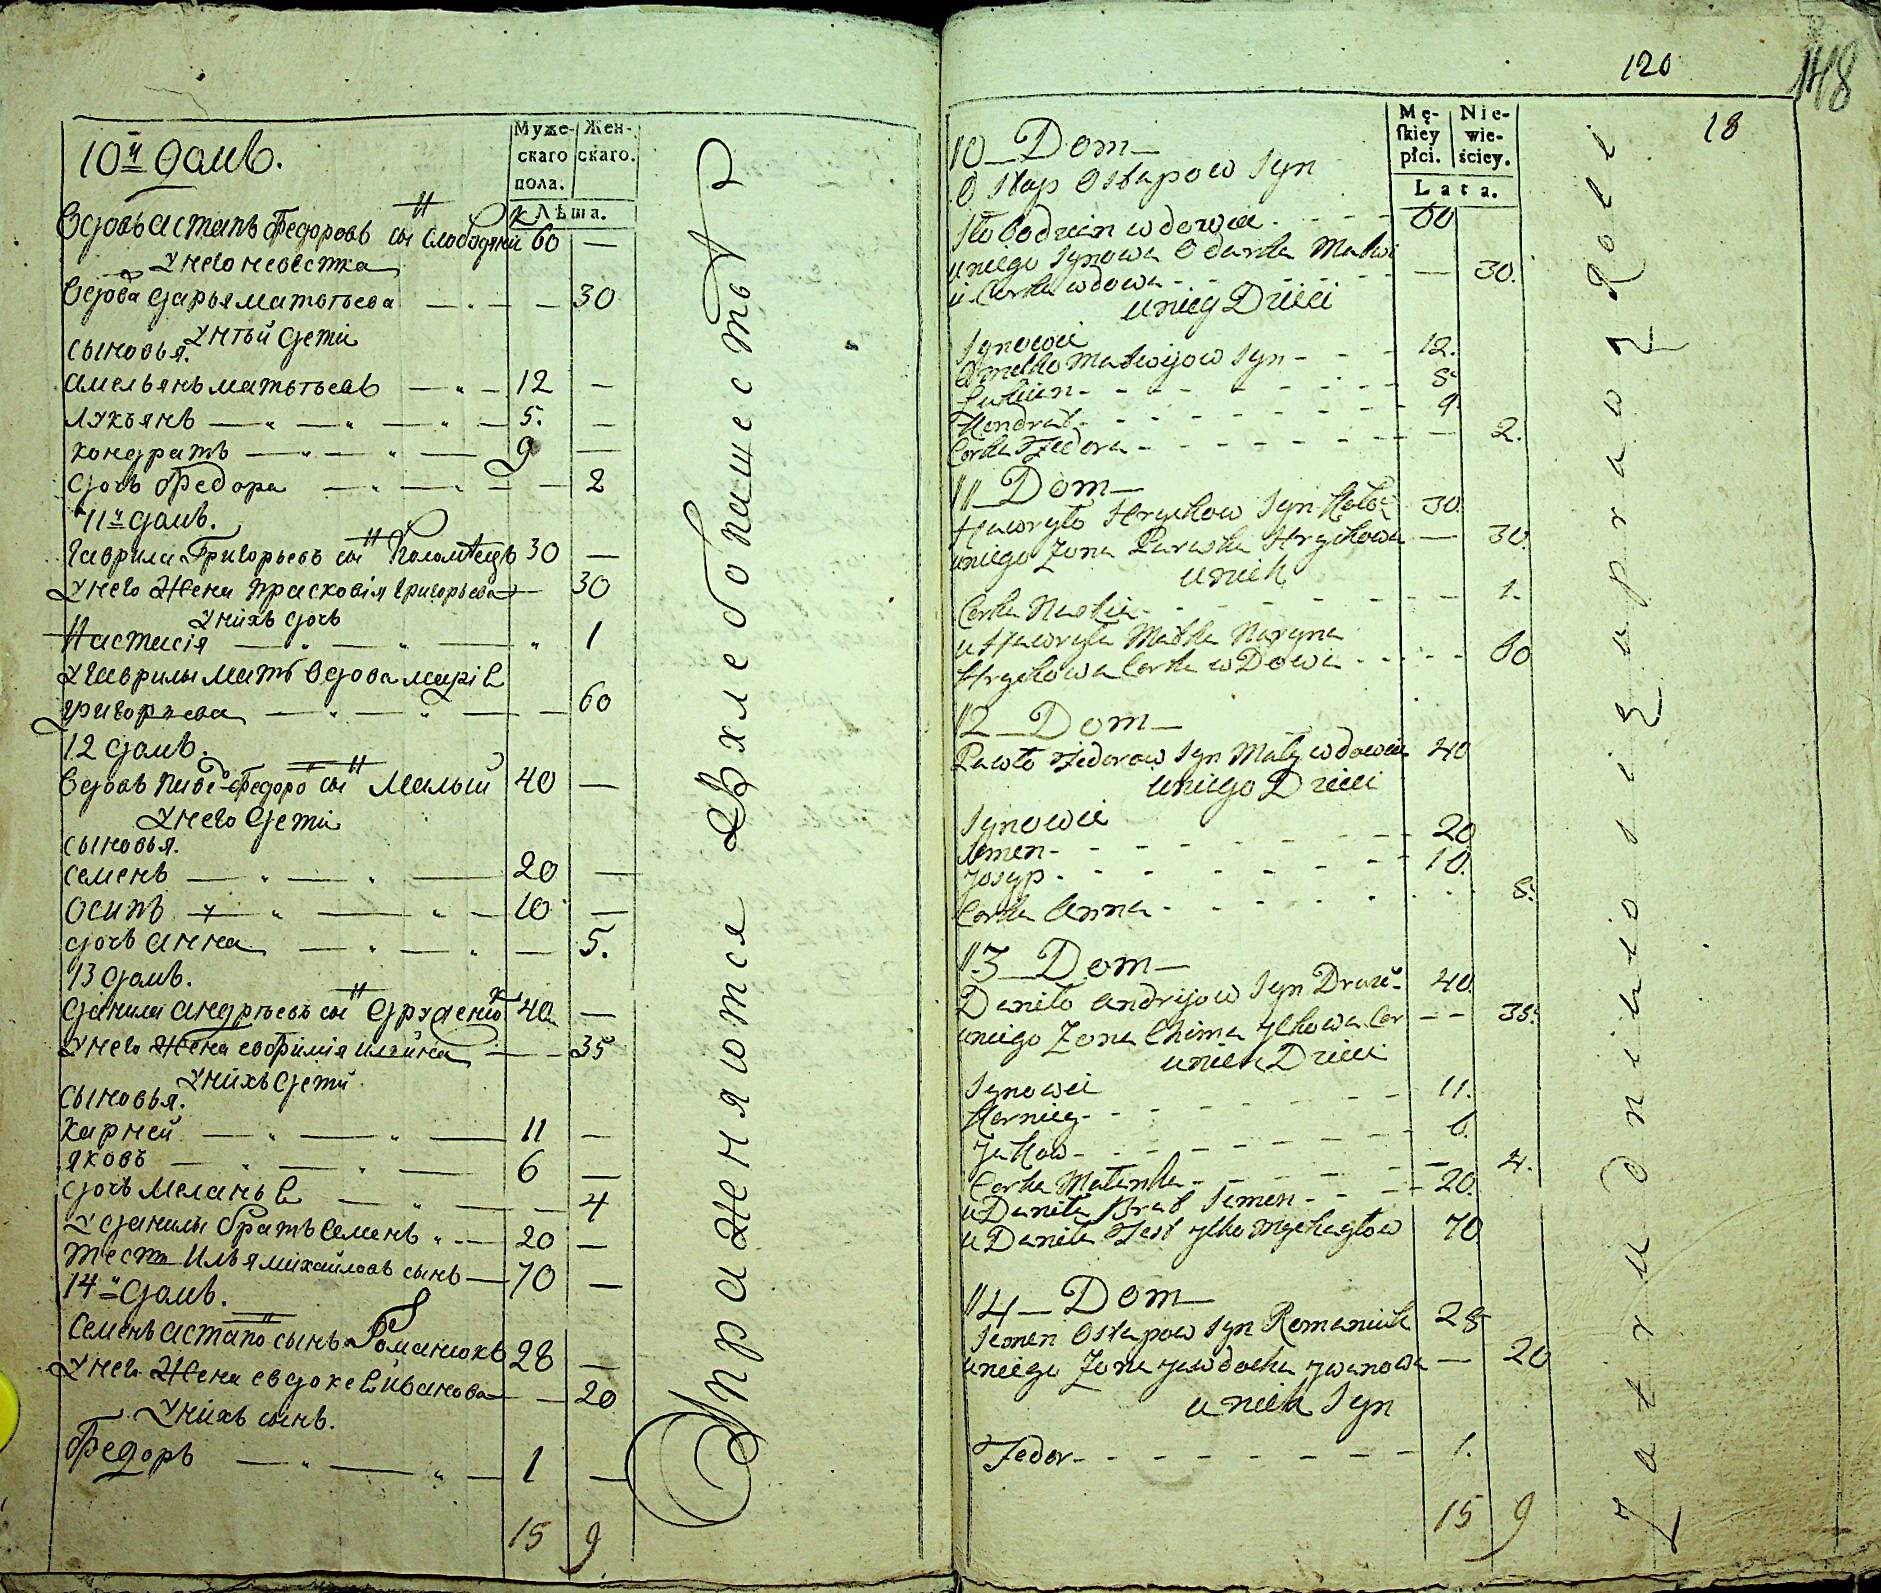 10й домъ.
Муже-
скаго
пола.
Жен-
скаго.
Лѣта.
Вдовъ Астапъ Федоровъ сы Слободянюк 60 —
У него невестка
Вдова Дарья Матвѣева — 30
У нѣй дети
Сыновья.
Амельянъ Матвѣевъ — 12 —
Лукьянъ — 5. —
Кондратъ — 9 —
Дочь Федора — 2
11й домъ.
Гаврила Григорьевъ сы Коломѣецъ 30 —
У него жена Прасковія Григорьева — 30
У нихъ дочь
Настасія — 1
У Гаврилы мать вдова
Григорьева — 60
12 домъ.
Вдовъ Федоро сы Малый 40 —
У него дети
Сыновья.
Семенъ — 20 —
Осипъ — 10 —
Дочь Анна — 5.
13 домъ.
Данила Андрѣевъ сы 40 —
У него жена Евфимія Ильина — 35
У нихъ дети
Сыновья.
Карней — 11 —
Яковъ — 6 —
Дочь Меланья — 4
У Данилы братъ Семенъ — 20 —
Тесть Илья Михайловъ сынъ — 70 —
14й домъ.
Семенъ Астапо сынъ Романюкъ 28 —
У него жена Евдокея Иванова — 20
У нихъ сынъ.
Федоръ — 1 —
15 9
Упражняются в хлебопашествѣ
120
148
18
Mę-
skiey
płci.
Nie-
wie-
ściey.
Lata.
10 Dom
Ostap Ostapow Syn
Słobodzian wdowiec 60
u niego Synowa Odarka Matwi
i Corka wdowa — 30.
u niey Dzieci
Synowie
Omelko Matwijow Syn 12.
Łukian 5
Kondrat 9.
Corka Fedora — 2.
11 Dom
Hawryło Hryckow Syn 30.
u niego Zona Paraska Hryckowa — 30.
u nich
Corka Nastia — 1.
u Hawryła Matka Maryna
Hryckowa Corka wDowa 60
12 Dom
Pawło Fedorow Syn Mały wdowiec 40
u niego Dzieci
Synowie
Semen 20
Josyp 10.
Corka Anna 8.
13 Dom
Daniło Andrijow Syn 40.
u niego Zona Chima Jlkowa Cor — 35.
u nich Dzieci
Synowie
Korniey 11.
Jakow 6.
Corka Małanka — 4.
u Daniła Brat Semen 20.
u Daniła Test Jlko Mychayłow 70
14 Dom
Semen Ostapow Syn Romaniuk 28
u niego Zona Jawdocha Jwanowa — 20
u nich Syn
Fedor 1.
15 9
Zatrudnienie i Zaprawą Roli